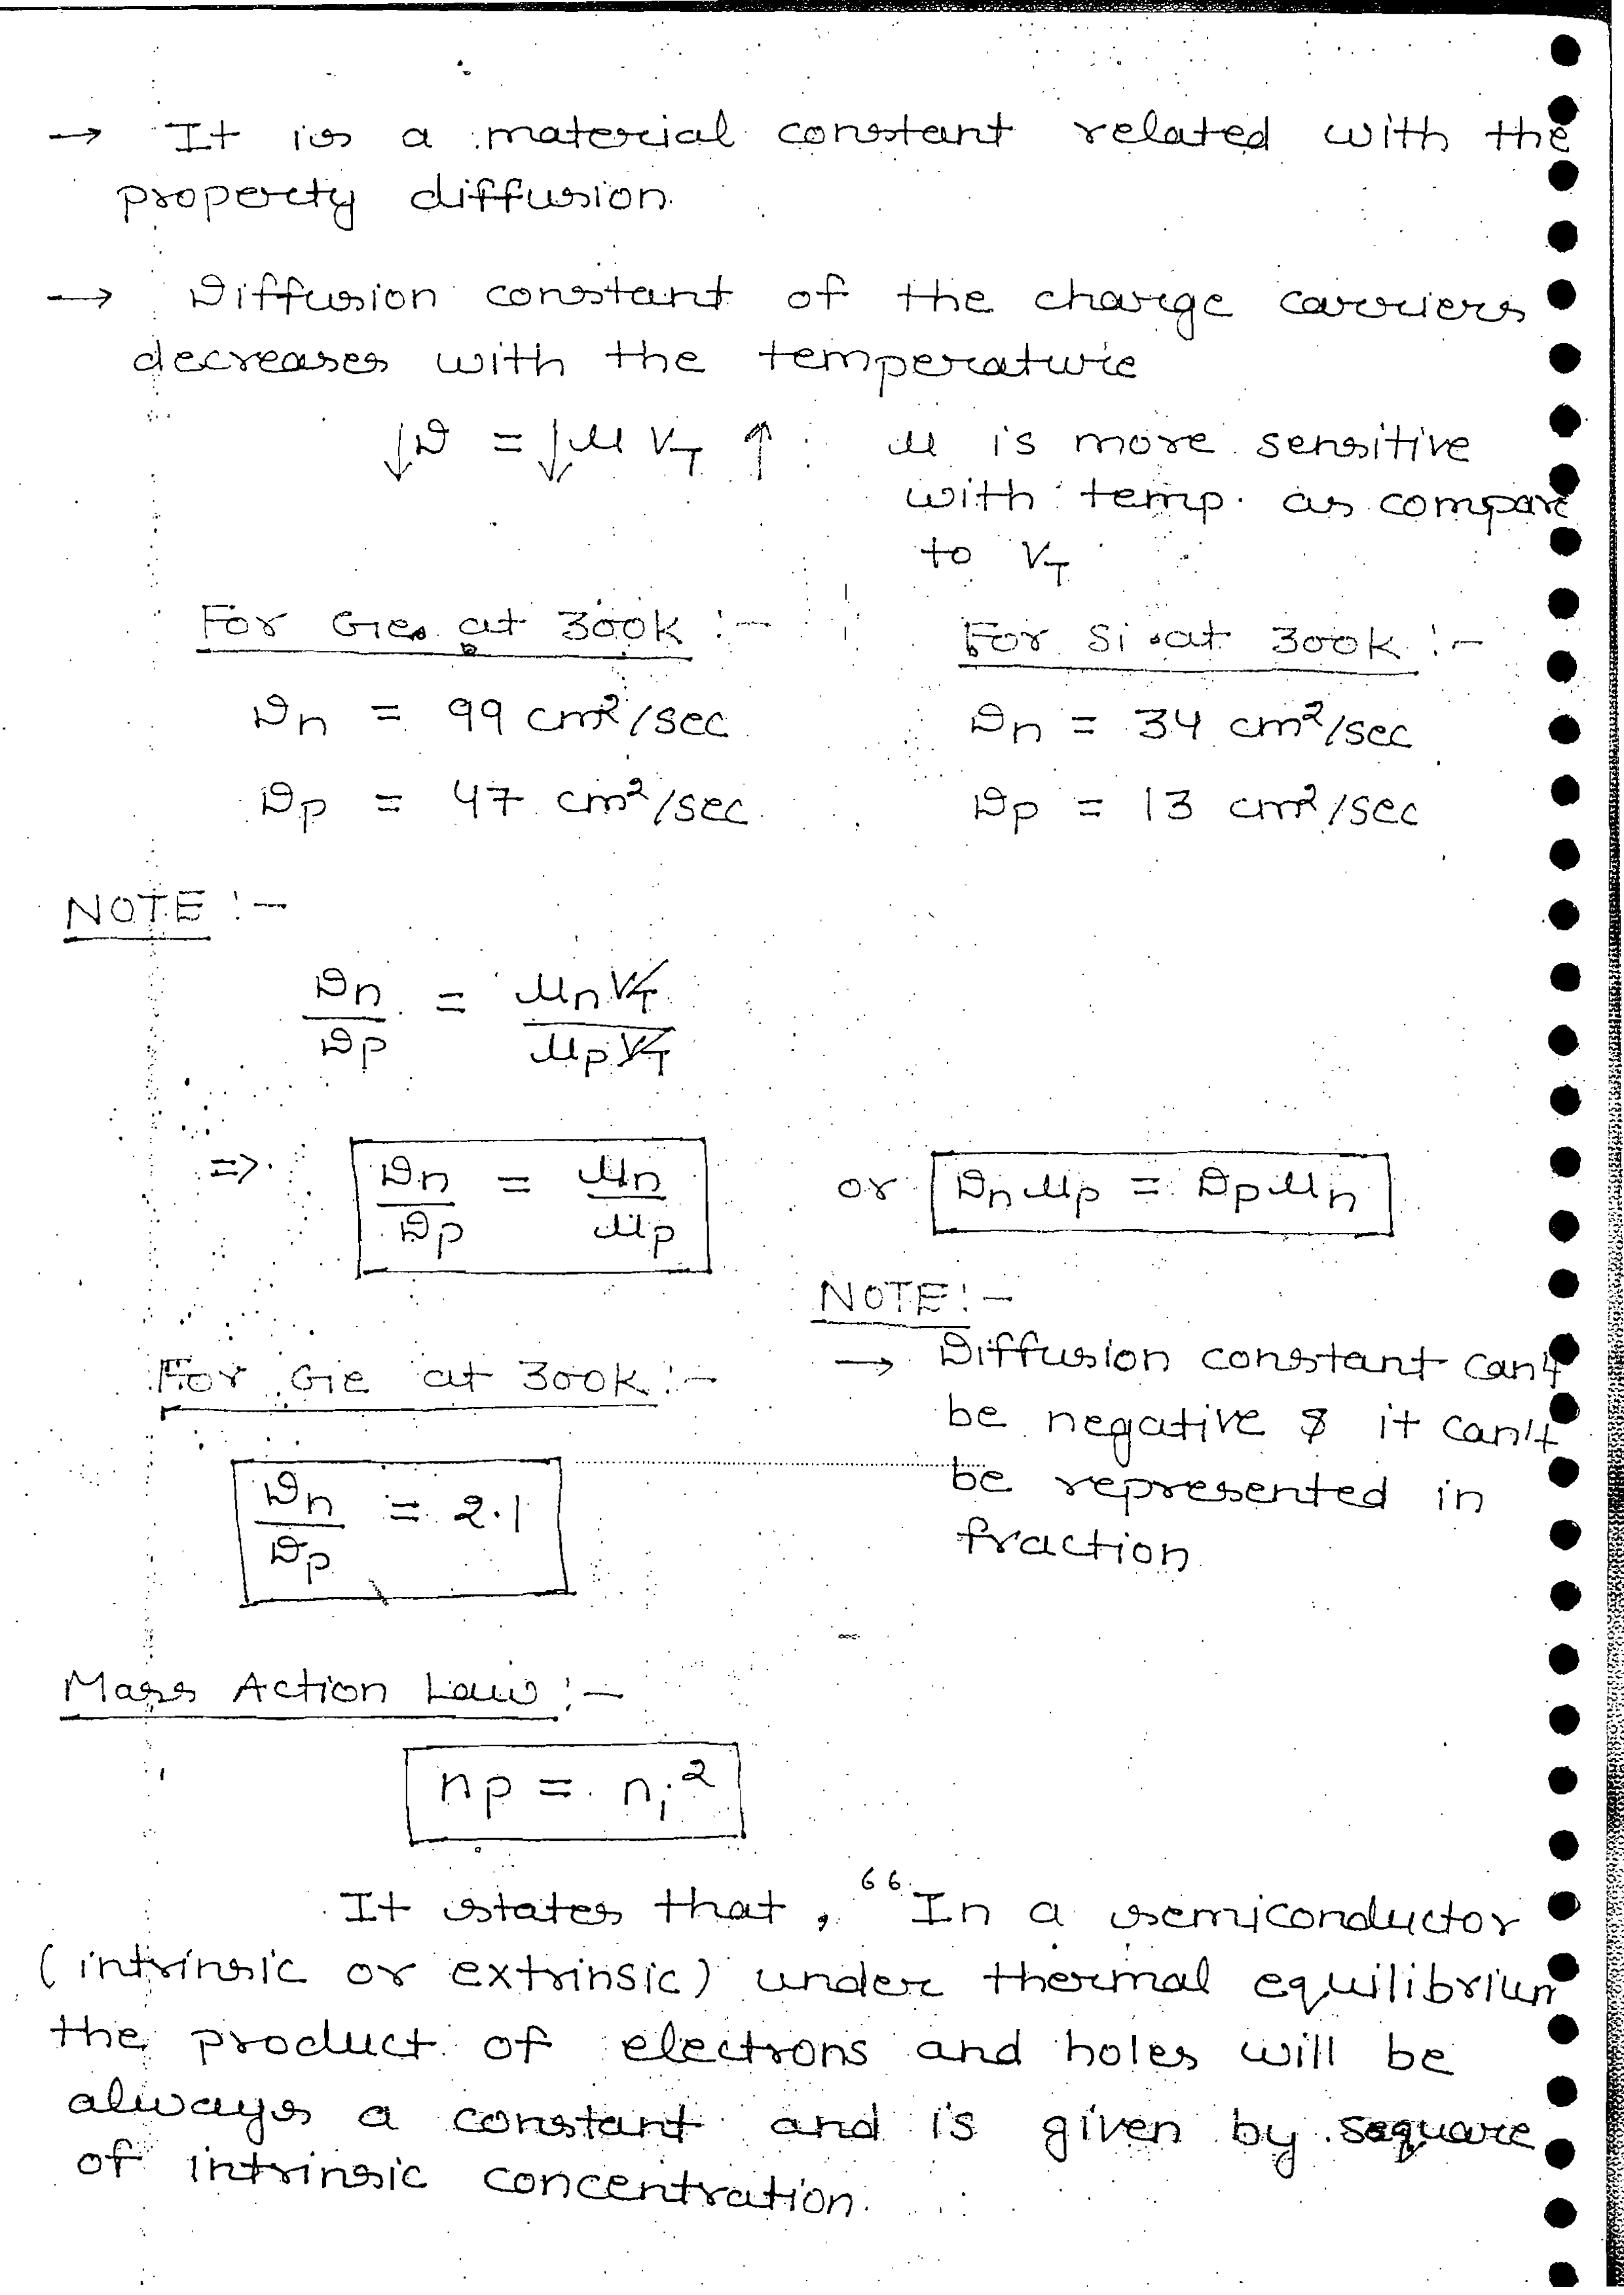 → It is a material constant related with the
property diffusion.
→ Diffusion constant of the charge carriers
decreases with the temperature
↓D = ↓μ V_T ↑ : μ is more sensitive
with temp. as compare
to V_T
For Ge at 300k :-
For Si at 300k :-
Dn = 99 cm²/sec
Dn = 34 cm²/sec
Dp = 47 cm²/sec
Dp = 13 cm²/sec
NOTE :-
Dn/Dp = μn V_T/μp V_T
=> Dn/Dp = μn/μp or Dn μp = Dp μn
NOTE :-
For Ge at 300k :-
→ Diffusion constant can't
be negative & it can't
be represented in
fraction
Dn/Dp = 2.1
Mass Action Law :-
np = ni²
It states that, “In a semiconductor
(intrinsic or extrinsic) under thermal equilibrium
the product of electrons and holes will be
always a constant and is given by square
of intrinsic concentration.